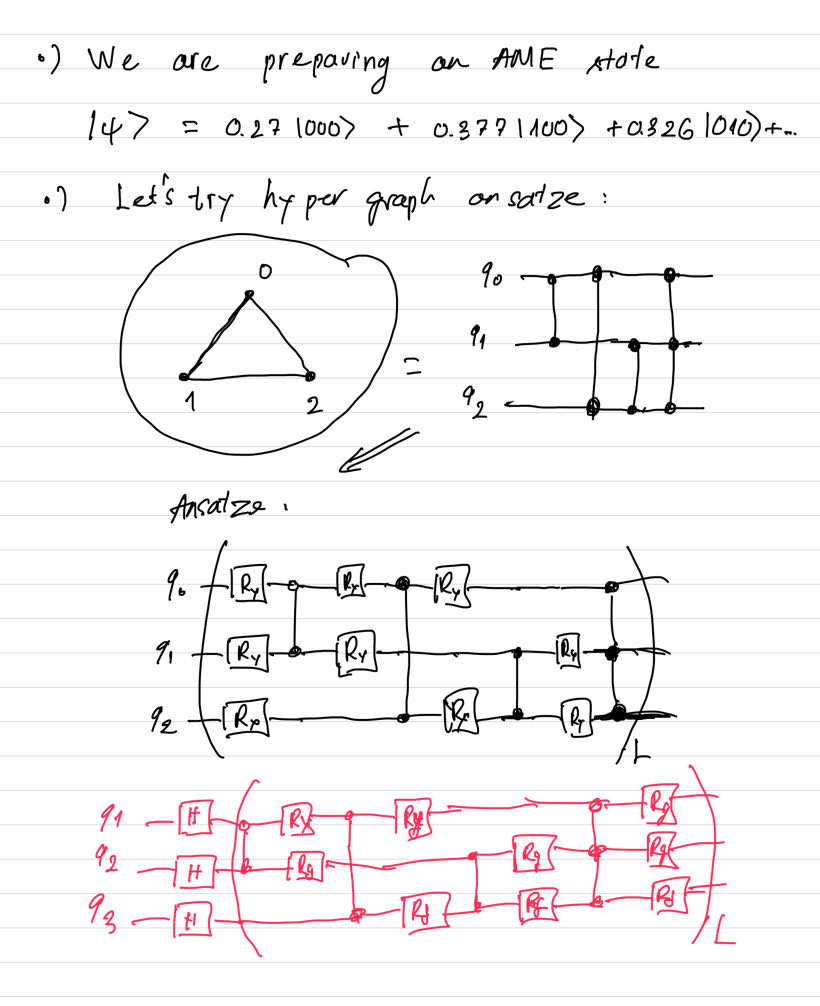 •) We are preparing an AME state
|ψ> = 0.27 |000> + 0.377 |100> + 0.326 |010> + ...
•) Let's try hyper graph ansatze :
0
1 2
=
q0
q1
q2
Ansatze :
q0 Ry Ry Ry
q1 Ry Ry Ry
q2 Ry Ry Ry
L
q1 H Rx Ry Ry
q2 H Ry Ry Ry
q3 H Ry Ry Ry
L